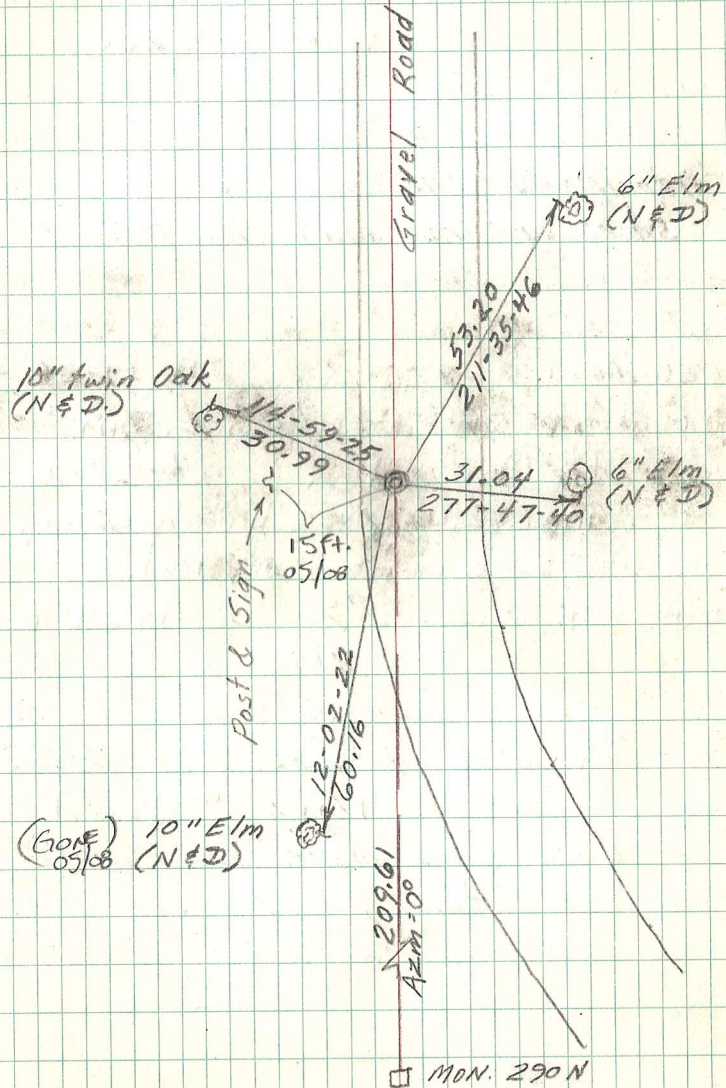 Gravel Road
6" Elm
(N & D)
53.20
211-35-46
10" twin Oak
(N & D.)
114-59-25
30.99
31.04
277-47-40
6" Elm
(N & D)
15ft.
05/08
Post & Sign
12-02-22
60.16
(GONE
05/08)
10" Elm
(N & D)
209.61
AZM=0°
MON. 290 N